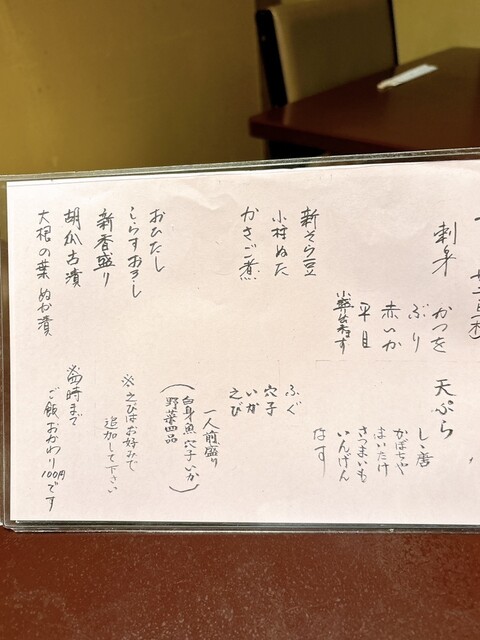 刺身
かつを
ぶり
赤いか
平目
新そら豆
小柱ぬた
かさご煮
おひたし
しらすおろし
新香盛り
胡瓜古漬
大根の葉ぬか漬
天ぷら
しし唐
かぼちゃ
まいたけ
さつまいも
いんげん
なす
ふぐ
穴子
いか
えび
一人前盛り
(白身魚 穴子 いか
野菜四品)
※えびはお好みで
追加して下さい
時まで
ご飯おかわり100円です